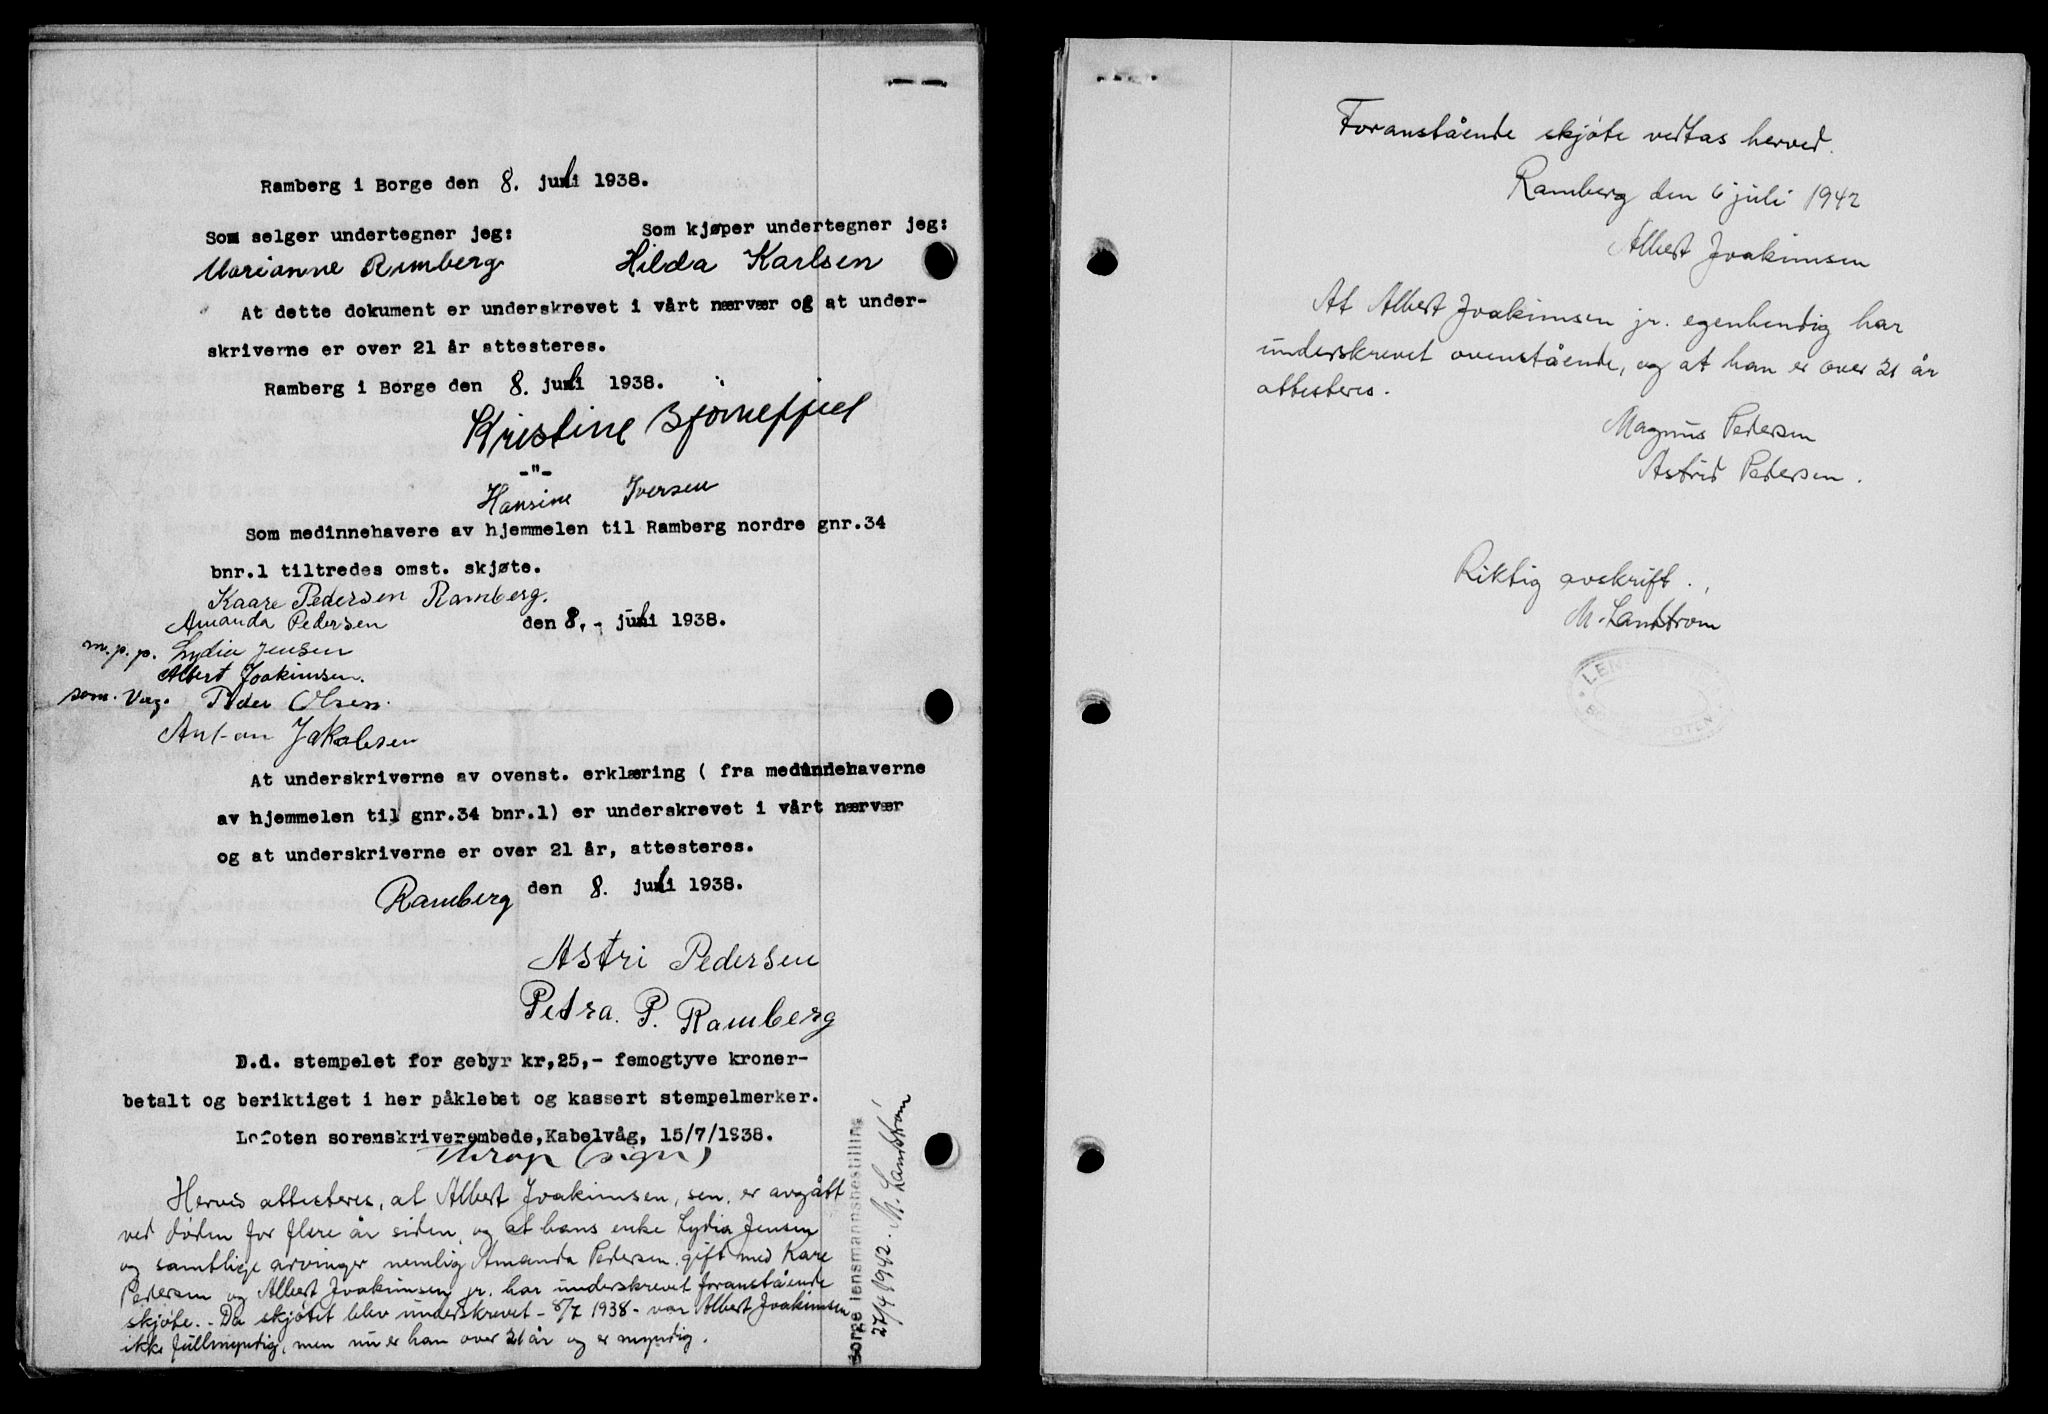 Ramberg i Borge den 8. juli 1938.
Som selger undertegner jeg: Som kjøper undertegner jeg:
Marianne Ramberg Hilda Karlsen
At dette dokument er underskrevet i vårt nærvær og at under-
skriverne er over 21 år attesteres.
Ramberg i Borge den 8. juli 1938.
Kristine Bjørnefjell
-"-
Hansine Iversen
Som medinnehavere av hjemmelen til Ramberg nordre gnr.34
bnr.1 tiltredes omst. skjøte.
Kaare Pedersen Ramberg.
Amanda Pedersen den 8.- juli 1938.
m.p.p. Lydia Jensen
Albert Joakimsen.
som. Verge Peder Olsen.
Anton Jakobsen
At underskriverne av ovenst. erklæring ( fra medinnehaverne
av hjemmelen til gnr.34 bnr.1) er underskrevet i vårt nærvær
og at underskriverne er over 21 år, attesteres.
Ramberg den 8. juli 1938.
Astri Pedersen
Petra. P. Ramberg
D.d. stempelet for gebyr kr,25,- femogtyve kroner-
betalt og beriktiget i her påklebet og kassert stempelmerker.
Lofoten sorenskriverembede,Kabelvåg, 15/7/1938.
(sign)
Herved attesteres, at Albert Joakimsen, sen, er avgått
ved døden for flere år siden, og at hans enke Lydia Jensen
og samtlige arvinger nemlig Amanda Pedersen gift med Kåre
Pedersen og Albert Joakimsen jr. har underskrevet foranstående
skjøte. - Da skjøtet blev underskrevet - 8/7 1938 - var Albert Joakimsen
ikke fullmyndig, men nu er han over 21 år og er myndig.
Borge lensmannsbestilling
27/4 1942. M. Landstrøm
Foranstående skjøte vedtas herved.
Ramberg den 6 juli 1942
Albert Joakimsen
At Albert Joakimsen jr. egenhendig har
underskrevet ovenstående, og at han er over 21 år
attesteres.
Magnus Pedersen
Astrid Pedersen.
Riktig avskrift.
M. Landstrøm